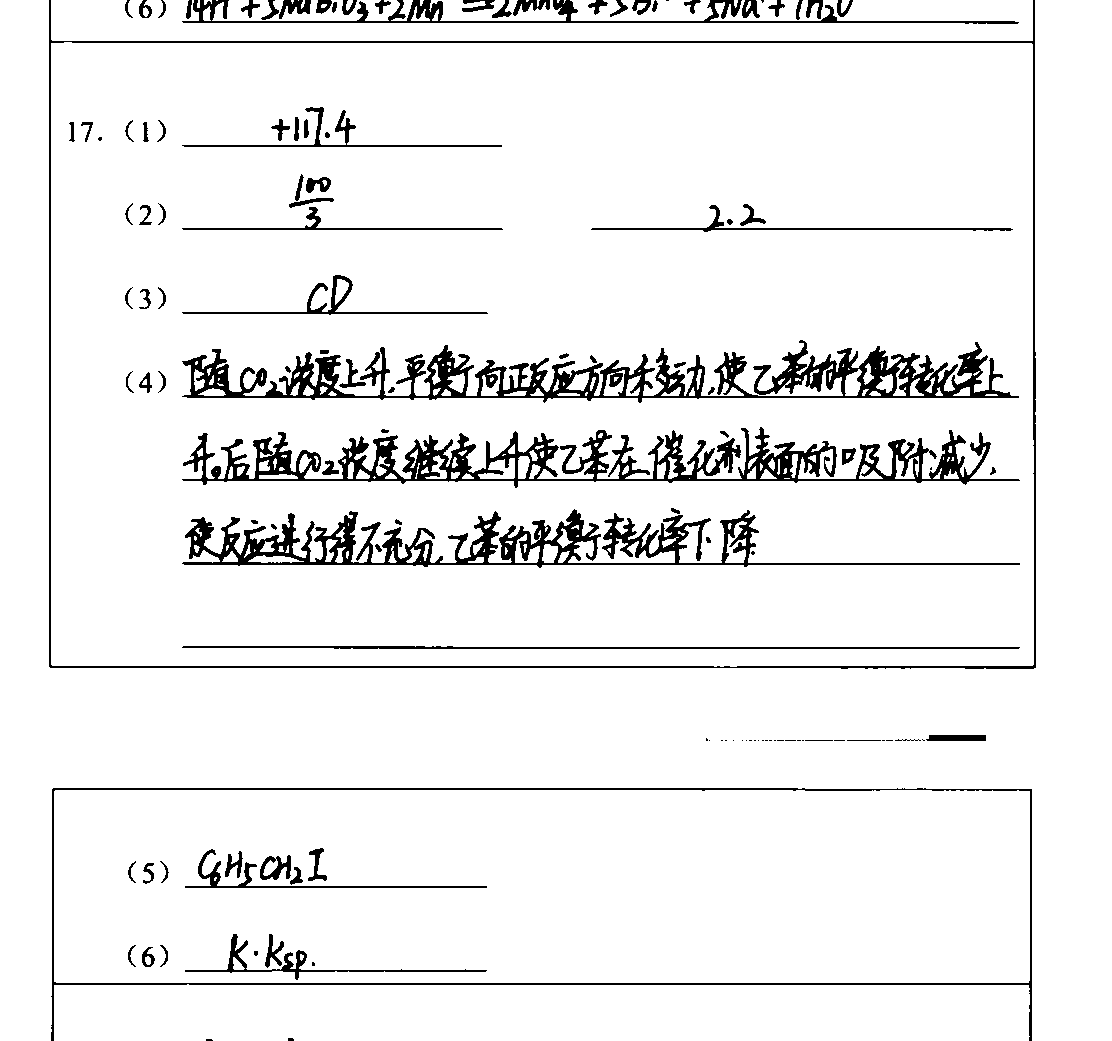 (6) 14H⁺+5NaBiO₃+2Mn²⁺=2MnO₄⁻+5Bi³⁺+5Na⁺+7H₂O
17.(1) +117.4
(2) 100/3 2.2
(3) CD
(4) 随CO₂浓度上升,平衡向正反应方向移动,使乙苯的平衡转化率上
升。后随CO₂浓度继续上升使乙苯在催化剂表面的吸附减少,
使反应进行得不充分,乙苯的平衡转化率下降
(5) C₆H₅CH₂I
(6) K·Ksp.